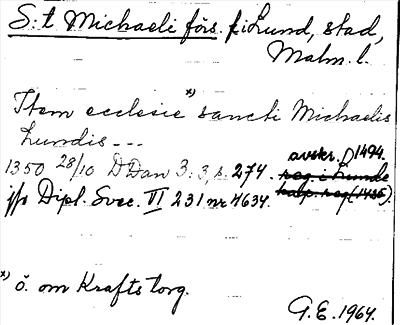 S:t Michaeli förs. f. i Lund, stad,
Malm. l.
Item ecclesie x) sancti Michaelis
Lundis ---
avskr. 1494.
1350 28/10 D Dan 3:3, s. 274. reg. i Lunde
jfr Dipl. Svec. VI 231 nr 4634. kap. reg (1435).
x) ö. om Krafts torg.
G.E. 1964.